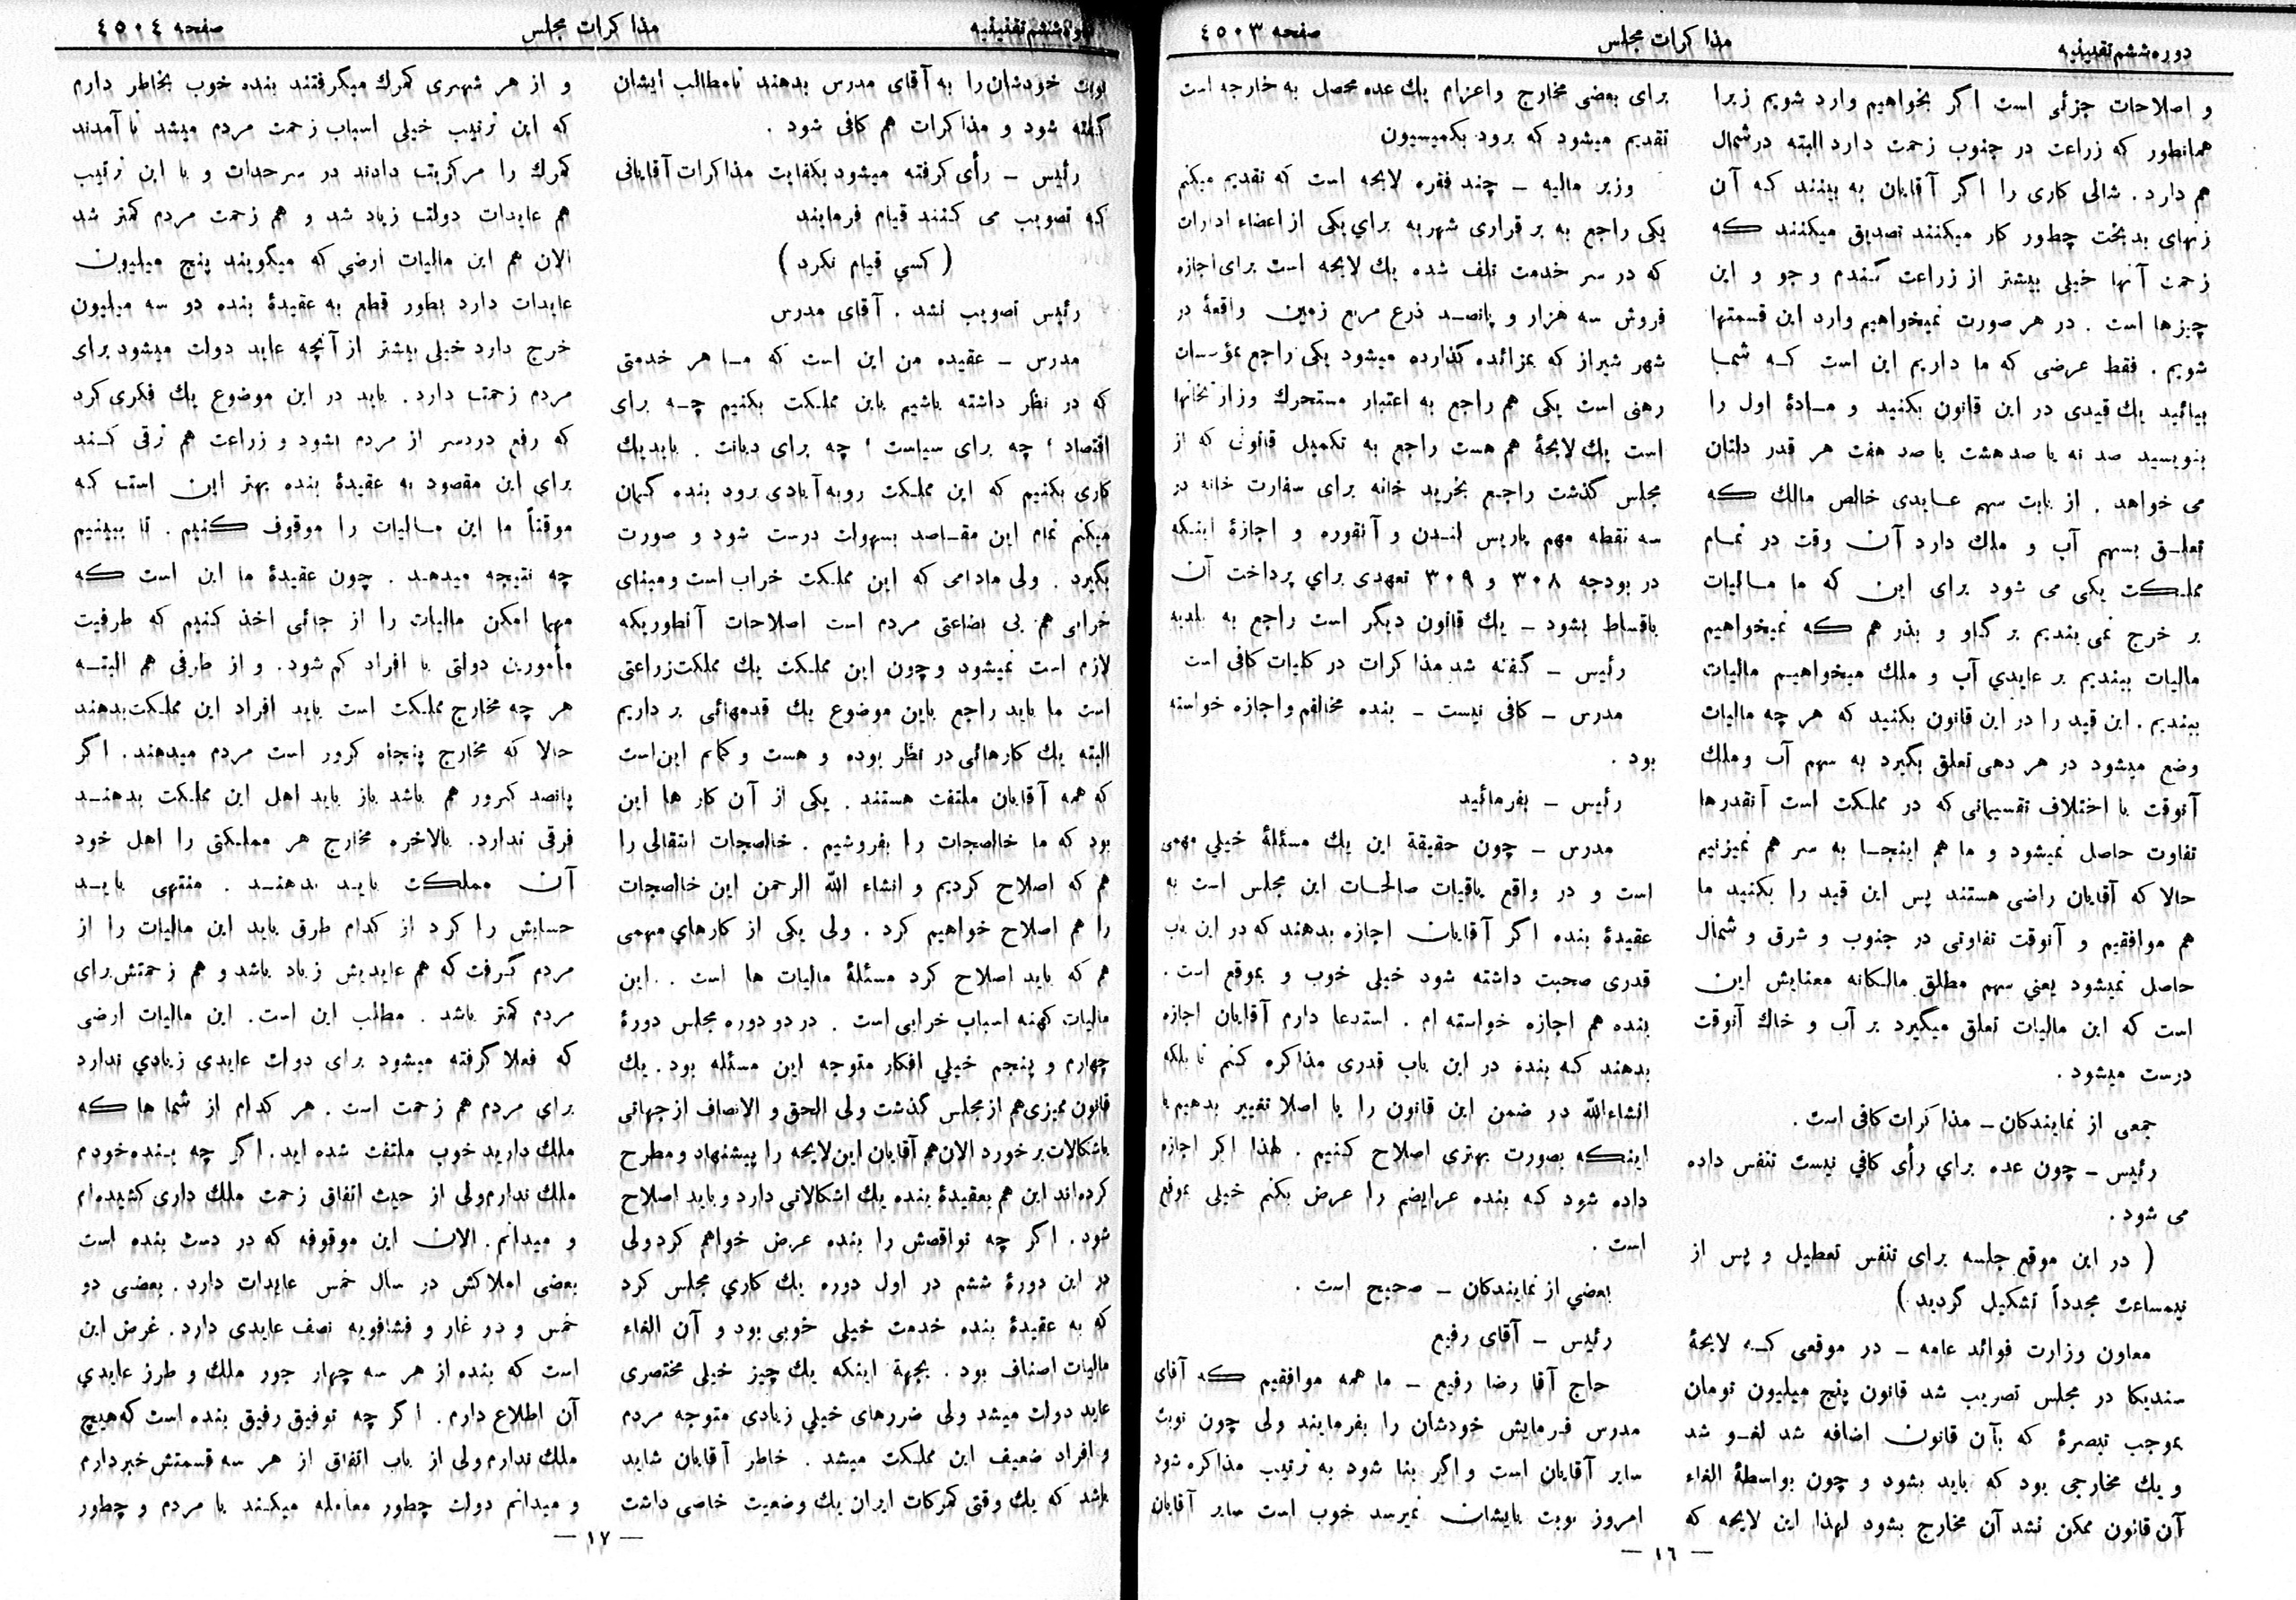 دوره ششم تقنینیه
مذاکرات مجلس
صفحه ٤٥٠٣
و اصلاحات جزئی است اگر بخواهیم وارد شویم زیرا
همانطور که زراعت در جنوب زحمت دارد البته در شمال
هم دارد. شالی کاری را اگر آقایان به بینند که آن
زنهای بدبخت چطور کار میکنند تصدیق میکنند که
زحمت آنها خیلی بیشتر از زراعت گندم و جو و این
چیزها است . در هر صورت نمیخواهیم وارد این قسمتها
شویم . فقط عرضی که ما داریم این است که شما
بیائید یك قیدی در این قانون بکنید و مادهٔ اول را
بنویسید صد نه یا صد هشت یا صد هفت هر قدر دلتان
می خواهد . از بابت سهم عایدی خالص مالك که
تعلق بسهم آب و ملك دارد آن وقت در تمام
مملکت یکی می شود برای این که ما مالیات
بر خرج نمی بندیم بر گاو و بذر هم که نمیخواهیم
مالیات ببندیم بر عایدي آب و ملك میخواهیم مالیات
ببندیم . این قید را در این قانون بکنید که هر چه مالیات
وضع میشود در هر دهی تعلق بگیرد به سهم آب و ملك
آنوقت با اختلاف تقسیماتی که در مملکت است آنقدرها
تفاوت حاصل نمیشود و ما هم اینجا به سر هم نمیزنیم
حالا که آقایان راضی هستند پس این قید را بکنید ما
هم موافقیم و آنوقت تفاوتی در جنوب و شرق و شمال
حاصل نمیشود یعني سهم مطلق مالکانه معنایش این
است که این مالیات تعلق میگیرد بر آب و خاك آنوقت
درست میشود .
جمعی از نمایندکان – مذاکرات کافی است .
رئیس – چون عده براي رأی کافي نیست تنفس داده
می شود .
( در این موقع جلسه برای تنفس تعطیل و پس از
نیمساعت مجدداً تشکیل گردید )
معاون وزارت فوائد عامه – در موقعی که لایحهٔ
سندیکا در مجلس تصویب شد قانون پنج میلیون تومان
بموجب تبصرهٔ که بآن قانون اضافه شد لغو شد
و یك مخارجی بود که باید بشود و چون بواسطهٔ الغاء
آن قانون ممکن نشد آن مخارج بشود لهذا این لایحه که
برای بعضی مخارج و اعزام یك عده محصل به خارجه است
تقدیم میشود که برود بکمیسیون
وزیر مالیه – چند فقره لایحه است که تقدیم میکنم
یکی راجع به برقراری شهریه براي یکی از اعضاء ادارات
که در سر خدمت تلف شده یك لایحه است برای اجازه
فروش سه هزار و پانصد ذرع مربع زمین واقعهٔ در
شهر شیراز که بمزائده گذارده میشود یکی راجع بمؤسسات
رهنی است یکی هم راجع به اعتبار مستحرك وزارتخانها
است یك لایحهٔ هم هست راجع به تکمیل قانونی که از
مجلس گذشت راجع بخرید خانه برای سفارت خانه در
سه نقطه مهم پاریس لندن و آنقوره و اجازهٔ اینکه
در بودجه ٣٠٨ و ٣٠٩ تعهدی براي پرداخت آن
باقساط بشود – یك قانون دیگر است راجع به بلدیه
رئیس – گفته شد مذاکرات در کلیات کافی است
مدرس – کافی نیست – بنده مخالفم و اجازه خواسته
بود .
رئیس – بفرمائید
مدرس – چون حقیقة این یك مسئلهٔ خیلي مهمی
است و در واقع باقیات صالحات این مجلس است به
عقیدهٔ بنده اگر آقایان اجازه بدهند که در این باب
قدری صحبت داشته شود خیلی خوب و بموقع است .
بنده هم اجازه خواسته ام . استدعا دارم آقایان اجازه
بدهند که بنده در این باب قدری مذاکره کنم تا بلکه
انشاءالله در ضمن این قانون را یا اصلا تغییر بدهیم یا
اینکه بصورت بهتری اصلاح کنیم . لهذا اگر اجازه
داده شود که بنده عرایضم را عرض بکنم خیلی بموقع
است .
بعضي از نمایندکان – صحیح است .
رئیس – آقای رفیع
حاج آقا رضا رفیع – ما همه موافقیم که آقای
مدرس فرمایش خودشان را بفرمایند ولی چون نوبت
سایر آقایان است و اگر بنا شود به ترتیب مذاکره شود
امروز نوبت بایشان نمیرسد خوب است سایر آقایان
– ١٦ –
دوره ششم تقنینیه
مذاکرات مجلس
صفحه ٤٥٠٤
نوبت خودشان را به آقای مدرس بدهند تا مطالب ایشان
گفته شود و مذاکرات هم کافی شود .
رئیس – رأی گرفته میشود بکفایت مذاکرات آقایانی
که تصویب می کنند قیام فرمایند
( کسي قیام نکرد )
رئیس تصویب نشد . آقای مدرس
مدرس – عقیده من این است که ما هر خدمتی
که در نظر داشته باشیم باین مملکت بکنیم چه برای
اقتصاد ؛ چه برای سیاست ؛ چه برای دیانت . باید یك
کاری بکنیم که این مملکت رو به آبادی برود بنده گمان
میکنم تمام این مقاصد بسهولت درست شود و صورت
بگیرد . ولی مادامی که این مملکت خراب است و مبنای
خرابی هم بی بضاعتی مردم است اصلاحات آنطوریکه
لازم است نمیشود و چون این مملکت یك مملکت زراعتی
است ما باید راجع باین موضوع یك قدمهائی برداریم
البته یك کارهائی در نظر بوده و هست و گمانم این است
که همه آقایان ملتفت هستند . یکی از آن کار ها این
بود که ما خالصجات را بفروشیم . خالصجات انتقالی را
هم که اصلاح کردیم و انشاء الله الرحمن این خالصجات
را هم اصلاح خواهیم کرد . ولی یکی از کارهاي مهمی
هم که باید اصلاح کرد مسئلهٔ مالیات ها است . . این
مالیات کهنه اسباب خرابی است . در دو دوره مجلس دورهٔ
چهارم و پنجم خیلي افکار متوجه این مسئله بود . یك
قانون ممیزی هم از مجلس گذشت ولی الحق و الانصاف از جهاتی
باشکالات برخورد الان هم آقایان این لایحه را پیشنهاد و مطرح
کرده‌اند این هم بعقیدهٔ بنده یك اشکالاتی دارد و باید اصلاح
شود . اگر چه نواقصش را بنده عرض خواهم کرد ولی
در این دورهٔ ششم در اول دوره یك کاري مجلس کرد
که به عقیدهٔ بنده خدمت خیلی خوبی بود و آن الغاء
مالیات اصناف بود . بجهة اینکه یك چیز خیلی مختصری
عاید دولت میشد ولی ضررهای خیلي زیادی متوجه مردم
و افراد ضعیف این مملکت میشد . خاطر آقایان شاید
باشد که یك وقتی گمرکات ایران یك وضعیت خاصی داشت
و از هر شهری گمرك میگرفتند بنده خوب بخاطر دارم
که این ترتیب خیلی اسباب زحمت مردم میشد تا آمدند
گمرك را مرکزیت دادند در سرحدات و با این ترتیب
هم عایدات دولت زیاد شد و هم زحمت مردم کمتر شد
الان هم این مالیات ارضی که میگویند پنج میلیون
عایدات دارد بطور قطع به عقیدهٔ بنده دو سه میلیون
خرج دارد خیلی بیشتر از آنچه عاید دولت میشود برای
مردم زحمت دارد . باید در این موضوع یك فکری کرد
که رفع دردسر از مردم بشود و زراعت هم ترقی کند
برای این مقصود به عقیدهٔ بنده بهتر این است که
موقتاً ما این مالیات را موقوف کنیم . تا ببینیم
چه نتیجه میدهد . چون عقیدهٔ ما این است که
مهما امکن مالیات را از جائی اخذ کنیم که طرفیت
مأمورین دولتی با افراد کم شود . و از طرفی هم البته
هر چه مخارج مملکت است باید افراد این مملکت بدهند
حالا که مخارج پنجاه کرور است مردم میدهند . اگر
پانصد کرور هم باشد باز باید اهل این مملکت بدهند
فرقی ندارد. بالاخره مخارج هر مملکتی را اهل خود
آن مملکت باید بدهند . منتهی باید
حسابش را کرد از کدام طرق باید این مالیات را از
مردم گرفت که هم عایدیش زیاد باشد و هم زحمتش برای
مردم کمتر باشد . مطلب این است. این مالیات ارضی
که فعلا گرفته میشود برای دولت عایدی زیادي ندارد
براي مردم هم زحمت است . هر کدام از شما ها که
ملك دارید خوب ملتفت شده اید. اگر چه بنده خودم
ملك ندارم ولی از حیث اتفاق زحمت ملك داری کشیده‌ام
و میدانم. الان این موقوفه که در دست بنده است
بعضی املاکش در سال خمس عایدات دارد . بعضی دو
خمس و در غار و فشافویه نصف عایدی دارد . غرض این
است که بنده از هر سه چهار جور ملك و طرز عایدي
آن اطلاع دارم . اگر چه توفیق رفیق بنده است که هیچ
ملك ندارم ولی از باب اتفاق از هر سه قسمتش خبر دارم
و میدانم دولت چطور معامله میکند با مردم و چطور
– ١٧ –